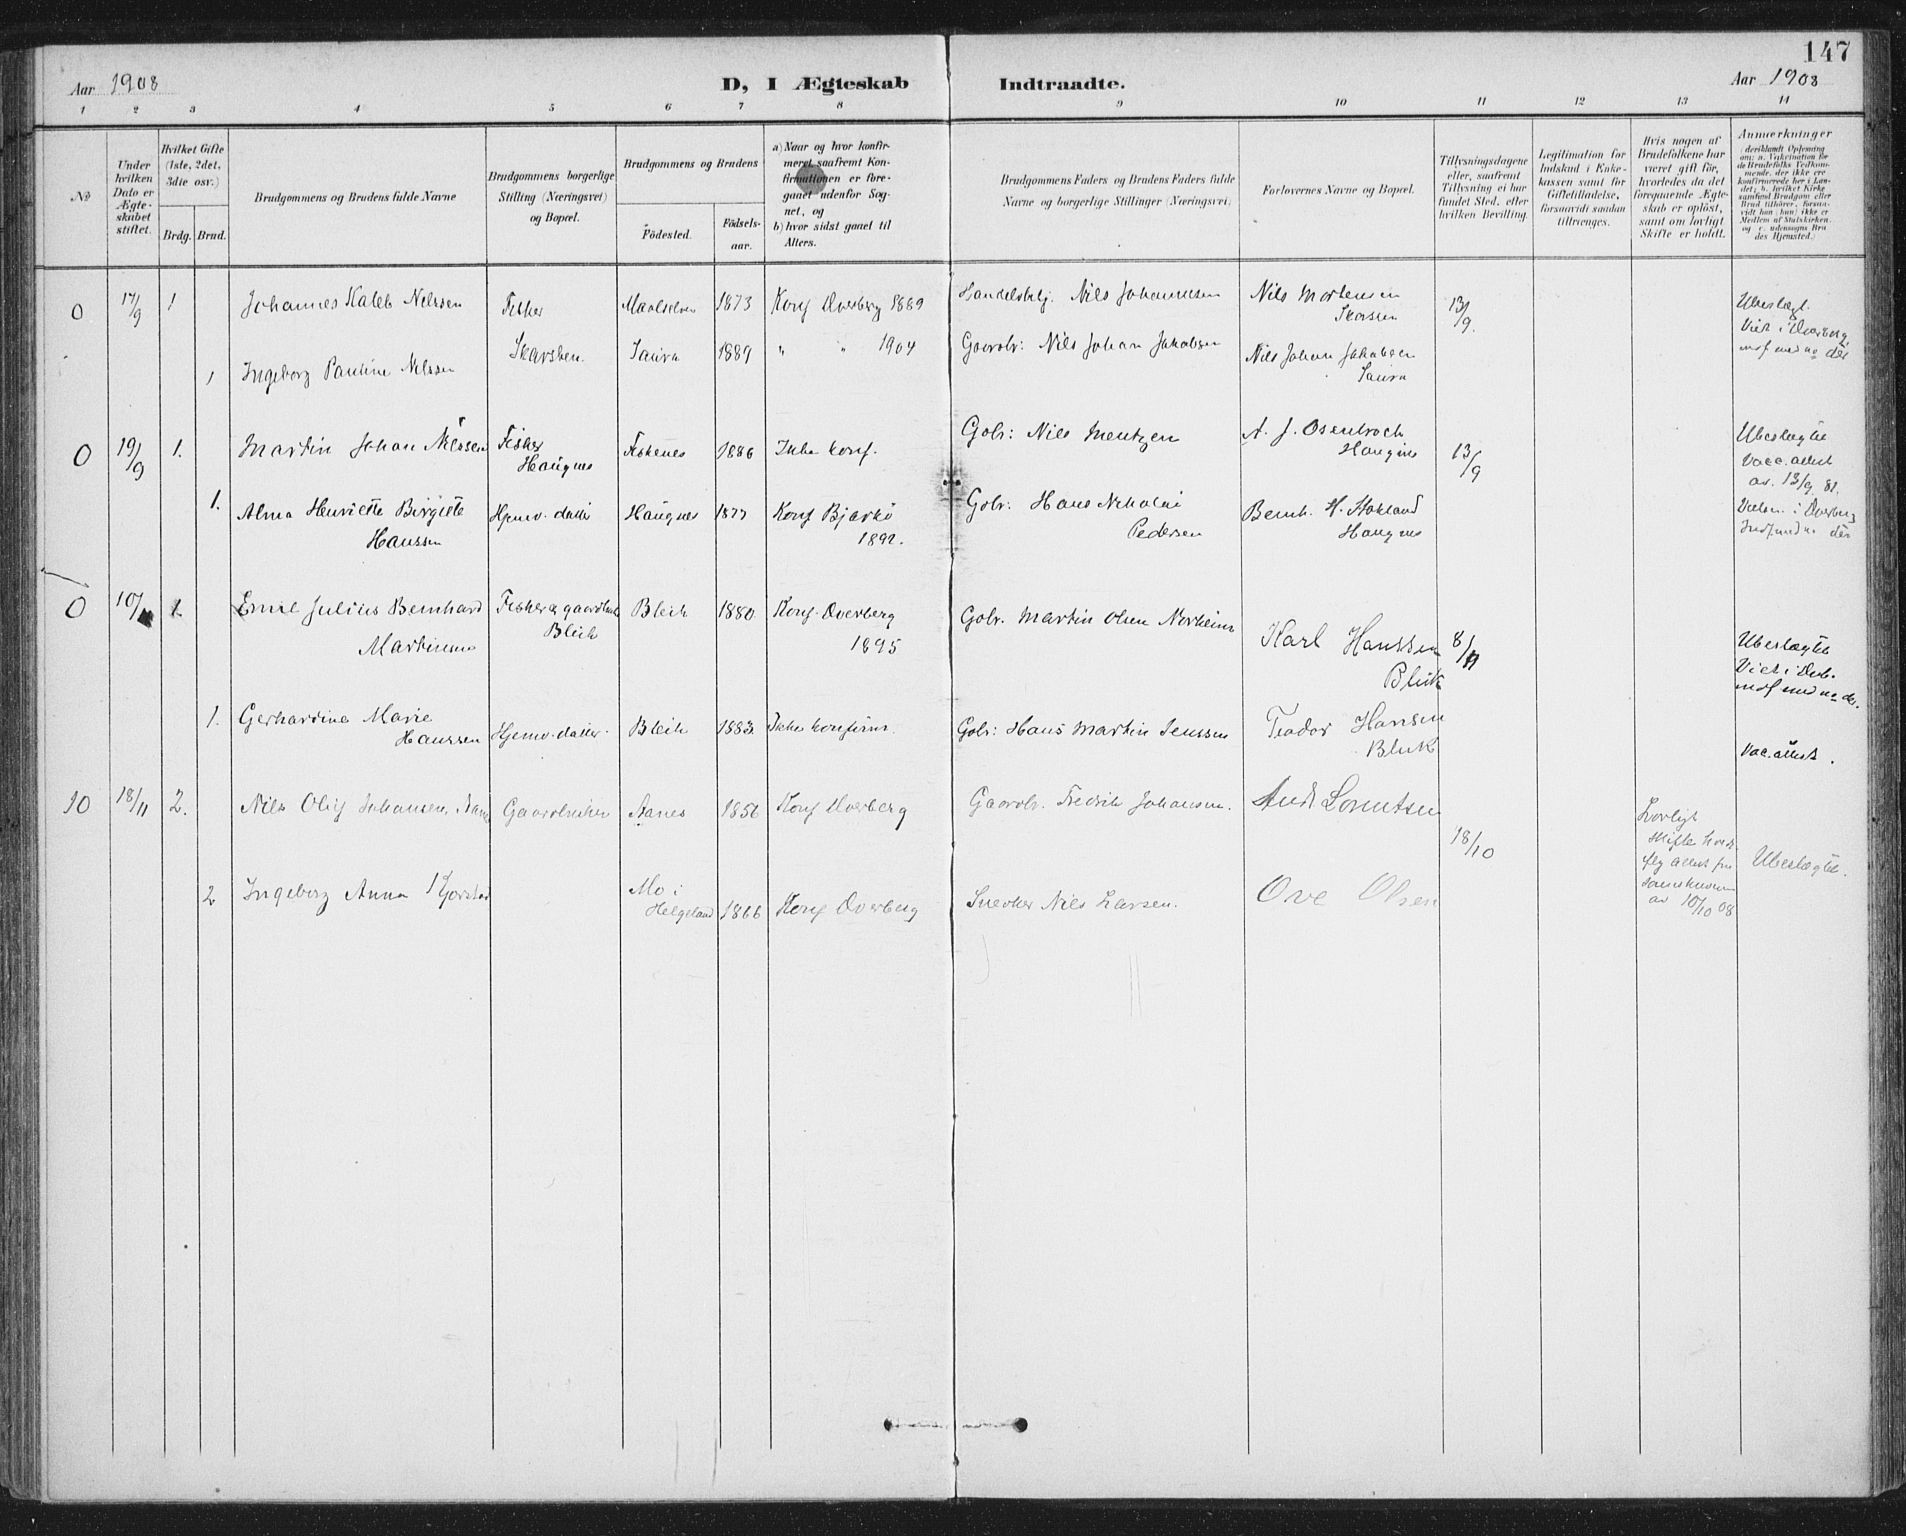 147
Aar 1908
D, I Ægteskab
Indtraadte.
Aar 1908
1 2 3 4 5 6 7 8 9 10 11 12 13 14
No
Under hvilken Dato er Ægteskabet stiftet.
Hvilket Gifte (1ste, 2det, 3die osv.)
Brdg. Brud.
Brudgommens og Brudens fulde Navne
Brudgommens borgerlige Stilling (Næringsvei) og Bopæl.
Brudgommens og Brudens
Födested.
Födselsaar.
a) Naar og hvor konfirmeret saafremt Konfirmationen er foregaaet udenfor Sognet, og
b) hvor sidst gaaet til Alters.
Brudgommens Faders og Brudens Faders fulde Navne og borgerlige Stillinger (Næringsvei)
Forlovernes Navne og Bopæl.
Tillysningsdagene eller, saafremt Tillysning ei har fundet Sted, efter hvilken Bevilling.
Legitimation for Indskud i Enkekassen samt for Giftetilladelse, forsaavidt saadan tiltrænges.
Hvis nogen af Brudefolkene har været gift för, hvorledes da det foregaaende Ægteskab er oplöst, samt om lovligt Skifte er holdt.
Anmerkninger
0 17/9 1 Johannes Kaleb Nilssen Fisker Maalselven 1873 Konf Dverberg 1889 Handelsbetj. Nils Johannesen Nils Mortensen 13/9. Ubeslægt.
Skarsten
Viet i Dverberg
1 Ingeborg Pauline Nilssen Saura 1889 " " 1904 Gaardbr: Nils Johan Jakobsen Nils Johan Jakobsen
Saura
0 19/9 1. Martin Johan Nilssen Fisker Haugnes Fiskenes 1886 Ikke konf. Gbr: Nils Mentzen A. J. Osenbroch 13/9 Ubeslægtet
Haugnes
Vacc. attest
av. 13/9 81.
1. Alma Henriette Birgitte Hjemv. datter Haugnes 1877 Konf Bjarkö Gbr: Hans Nikolai Bernh. H. Stokland
Hanssen 1892. Pedersen Haugnes
0 10/11 1. Emil Julius Bernhard Fisker & gaardbruk Bleik 1880. Konf. Dverberg Gbr. Martin Olsen Norheim Karl Hanssen 8/11 Ubeslægtet
Martinsen Bleik 1895 Bleik
Viet i Dvb.
1. Gerhardine Marie Hjemv. datter. Bleik 1883. Ikke konfirm. Gbr: Hans Martin Jenssen Teodor Hansen
Hanssen Bleik
Vac. attest.
10 18/11 2. Nils Oluf Johansen, Gaardbruker Aanes 1856 Konf Dverberg Gaardbr. Fredrik Johansen. Lorentsen 18/10 Lovligt
Skifte
2 Ingeborg Anna Mo i Helgeland 1866 Konf Dverberg Snedker Nils Larsen. Ove Olsen av 10/10 08 Ubeslægtet.